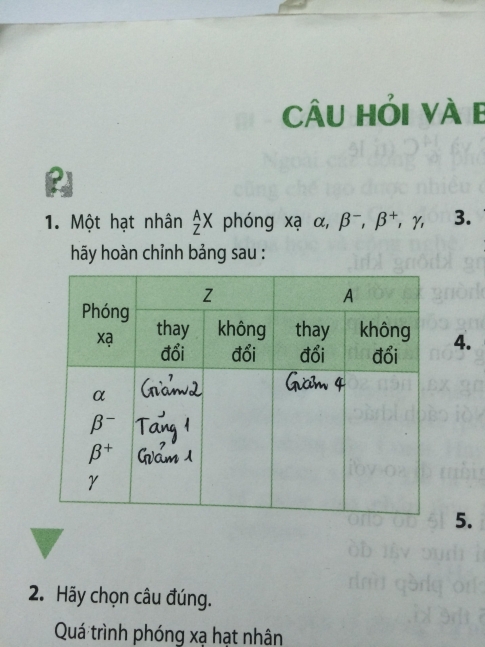 CÂU HỎI VÀ B
1. Một hạt nhân ᴬ_ZX phóng xạ α, β⁻, β⁺, γ, 3.
hãy hoàn chỉnh bảng sau :
Phóng xạ Z A
thay đổi không đổi thay đổi không đổi
4.
α Giảm 2 Giảm 4
β⁻ Tăng 1
β⁺ Giảm 1
γ
5.
2. Hãy chọn câu đúng.
Quá trình phóng xạ hạt nhân